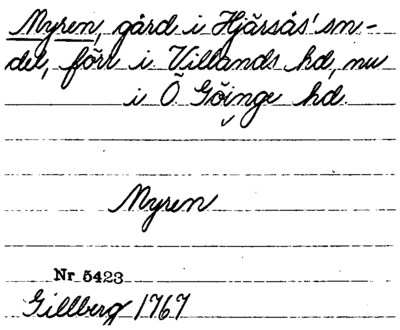 Myren, gård i Hjärsås' sn-
del, förr i Villands hd, nu
i Ö. Göinge hd.
Myren
Nr 5423
Gillberg 1767